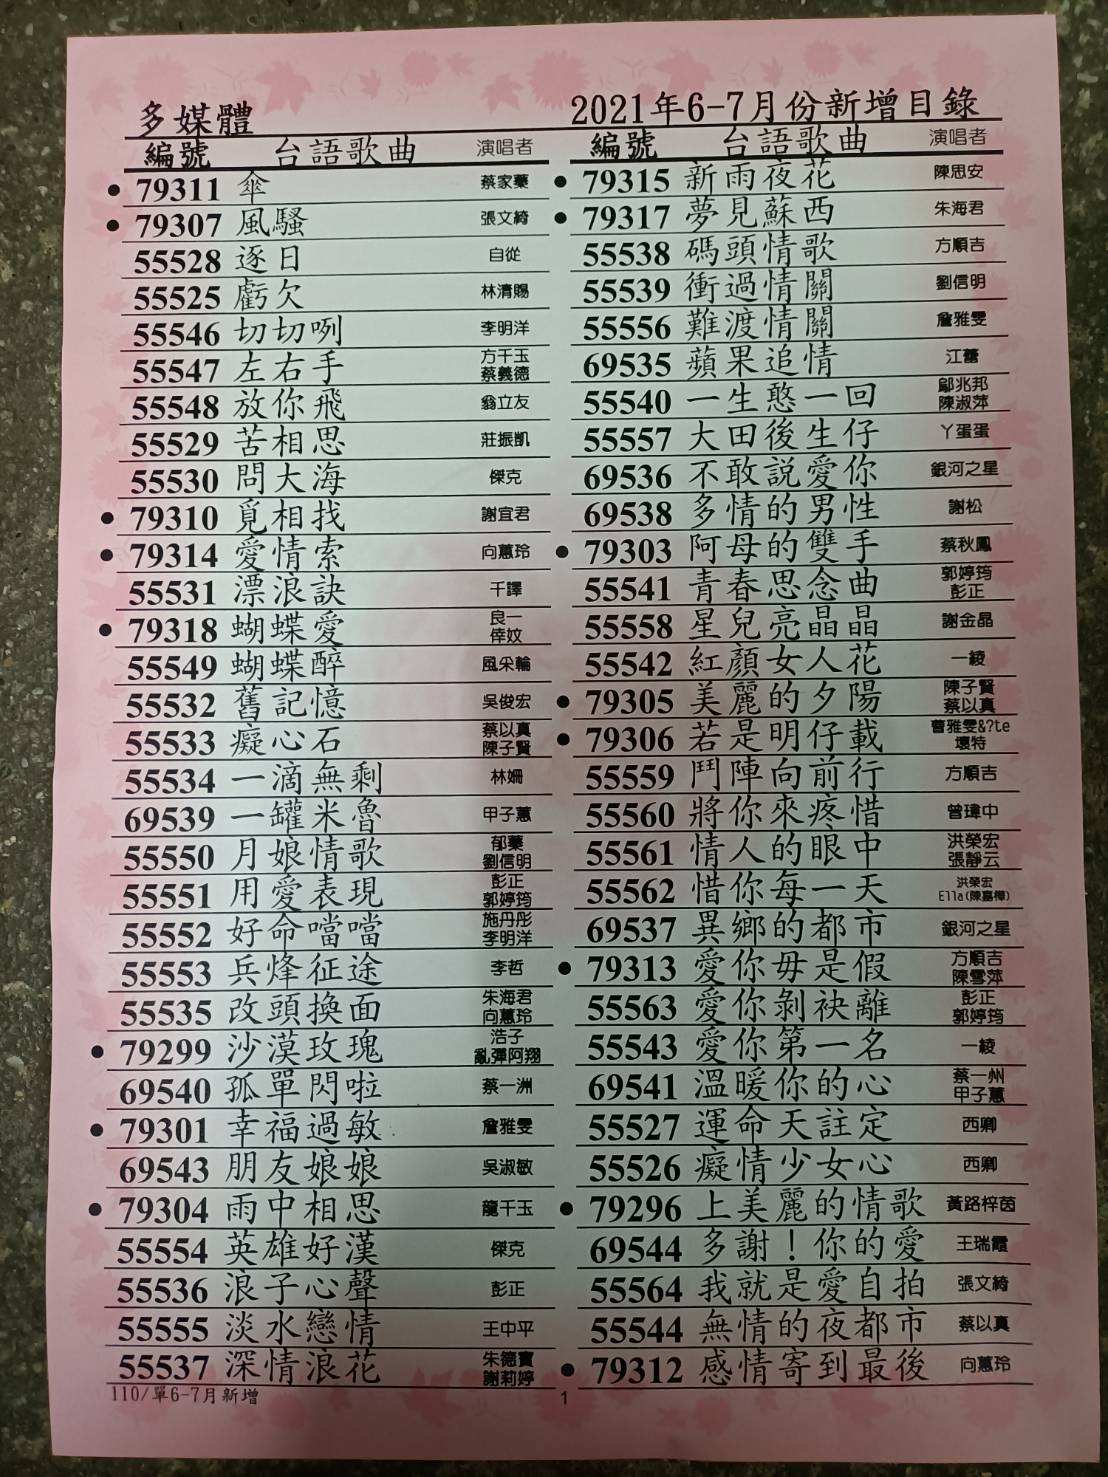 多媒體 2021年6-7月份新增目錄
編號 台語歌曲 演唱者
● 79311 傘 蔡家蓁
● 79307 風騷 張文綺
55528 逐日 自從
55525 虧欠 林清賜
55546 切切咧 李明洋
55547 左右手 方千玉 蔡義德
55548 放你飛 翁立友
55529 苦相思 莊振凱
55530 問大海 傑克
● 79310 覓相找 謝宜君
● 79314 愛情索 向蕙玲
55531 漂浪訣 千譯
● 79318 蝴蝶愛 良一 倖妏
55549 蝴蝶醉 風采輪
55532 舊記憶 吳俊宏
55533 癡心石 蔡以真 陳子賢
55534 一滴無剩 林姍
69539 一罐米魯 甲子蕙
55550 月娘情歌 郁蓁 劉信明
55551 用愛表現 彭正 郭婷筠
55552 好命噹噹 施丹彤 李明洋
55553 兵烽征途 李哲
55535 改頭換面 朱海君 向蕙玲
● 79299 沙漠玫瑰 浩子 亂彈阿翔
69540 孤單閂啦 蔡一洲
● 79301 幸福過敏 詹雅雯
69543 朋友娘娘 吳淑敏
● 79304 雨中相思 龍千玉
55554 英雄好漢 傑克
55536 浪子心聲 彭正
55555 淡水戀情 王中平
55537 深情浪花 朱德寶 謝莉婷
編號 台語歌曲 演唱者
● 79315 新雨夜花 陳思安
● 79317 夢見蘇西 朱海君
55538 碼頭情歌 方順吉
55539 衝過情關 劉信明
55556 難渡情關 詹雅雯
69535 蘋果追情 江蕾
55540 一生憨一回 鄔兆邦 陳淑萍
55557 大田後生仔 丫蛋蛋
69536 不敢說愛你 銀河之星
69538 多情的男性 謝松
● 79303 阿母的雙手 蔡秋鳳
55541 青春思念曲 郭婷筠 彭正
55558 星兒亮晶晶 謝金晶
55542 紅顏女人花 一綾
● 79305 美麗的夕陽 陳子賢 蔡以真
● 79306 若是明仔載 曹雅雯&?te 壞特
55559 鬥陣向前行 方順吉
55560 將你來疼惜 曾瑋中
55561 情人的眼中 洪榮宏 張靜云
55562 惜你每一天 洪榮宏 Ella(陳嘉樺)
69537 異鄉的都市 銀河之星
● 79313 愛你毋是假 方順吉 陳雪萍
55563 愛你剝袂離 彭正 郭婷筠
55543 愛你第一名 一綾
69541 溫暖你的心 蔡一州 甲子蕙
55527 運命天註定 西卿
55526 癡情少女心 西卿
● 79296 上美麗的情歌 黃路梓茵
69544 多謝！你的愛 王瑞霞
55564 我就是愛自拍 張文綺
55544 無情的夜都市 蔡以真
● 79312 感情寄到最後 向蕙玲
110/單6-7月新增 1